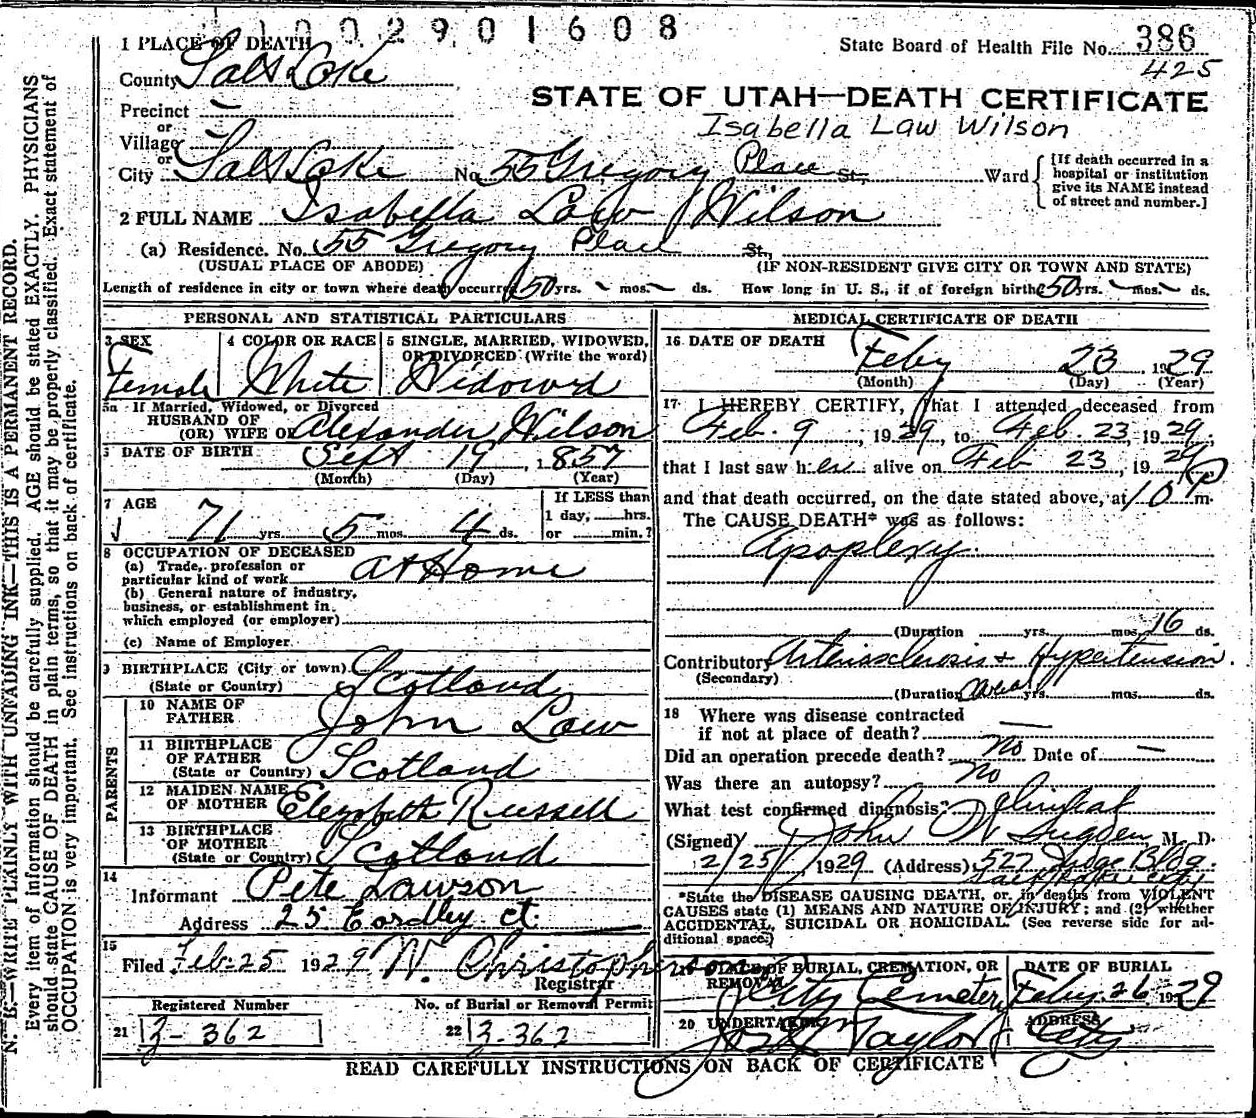 1002901608
1 PLACE OF DEATH
State Board of Health File No. 386
425
County Salt Lake
STATE OF UTAH—DEATH CERTIFICATE
Precinct –
Isabella Law Wilson
or
Village –
or
City Salt Lake No. 55 Gregory Place St., Ward
[If death occurred in a
hospital or institution
give its NAME instead
of street and number.]
2 FULL NAME Isabella Law Wilson
(a) Residence. No. 55 Gregory Place St.
(USUAL PLACE OF ABODE) (IF NON-RESIDENT GIVE CITY OR TOWN AND STATE)
Length of residence in city or town where death occurred 50 yrs. – mos. – ds. How long in U. S., if of foreign birth? 50 yrs. – mos. – ds.
PERSONAL AND STATISTICAL PARTICULARS
3 SEX 4 COLOR OR RACE 5 SINGLE, MARRIED, WIDOWED,
OR DIVORCED (Write the word)
Female White Widowed
5a If Married, Widowed, or Divorced
HUSBAND OF
(OR) WIFE OF Alexander Wilson
6 DATE OF BIRTH Sept 19, 1857
(Month) (Day) (Year)
7 AGE If LESS than
1 day, hrs.
71 yrs. 5 mos. 4 ds. or min.?
8 OCCUPATION OF DECEASED
(a) Trade, profession or
particular kind of work At Home
(b) General nature of industry,
business, or establishment in
which employed (or employer)
(c) Name of Employer
9 BIRTHPLACE (City or town)
(State or Country) Scotland
PARENTS
10 NAME OF
FATHER John Law
11 BIRTHPLACE
OF FATHER
(State or Country) Scotland
12 MAIDEN NAME
OF MOTHER Elizabeth Russell
13 BIRTHPLACE
OF MOTHER
(State or Country) Scotland
14
Informant Pete Lawson
Address 25 Eardley ct.
15
Filed Feb. 25 1929 W. Christopherson
Registrar
Registered Number No. of Burial or Removal Permit
21 3-362 22 3-362
MEDICAL CERTIFICATE OF DEATH
16 DATE OF DEATH Feby 23 1929
(Month) (Day) (Year)
17 I HEREBY CERTIFY, that I attended deceased from
Feb. 9, 1929, to Feb. 23, 1929,
that I last saw her alive on Feb 23, 1929
and that death occurred, on the date stated above, at 10 P m.
The CAUSE DEATH* was as follows:
Apoplexy.
(Duration yrs. mos. 16 ds.
Contributory Arteriosclerosis + Hypertension.
(Secondary)
(Duration several yrs. mos. ds.
18 Where was disease contracted
if not at place of death? —
Did an operation precede death? no Date of —
Was there an autopsy? no
What test confirmed diagnosis? Clinical
(Signed) John W Sugden M. D.
2/25/1929 (Address) 527 Judge Bldg.
Salt Lake City
*State the DISEASE CAUSING DEATH, or, in deaths from VIOLENT
CAUSES state (1) MEANS AND NATURE OF INJURY; and (2) whether
ACCIDENTAL, SUICIDAL OR HOMICIDAL. (See reverse side for ad-
ditional space.)
19 PLACE OF BURIAL, CREMATION, OR DATE OF BURIAL
REMOVAL
City Cemetery Feby. 26 1929
20 UNDERTAKER ADDRESS
Taylor City
READ CAREFULLY INSTRUCTIONS ON BACK OF CERTIFICATE
N. B.—WRITE PLAINLY WITH UNFADING INK—THIS IS A PERMANENT RECORD.
Every item of information should be carefully supplied. AGE should be stated EXACTLY. PHYSICIANS
should state CAUSE OF DEATH in plain terms, so that it may be properly classified. Exact statement of
OCCUPATION is very important. See instructions on back of certificate.